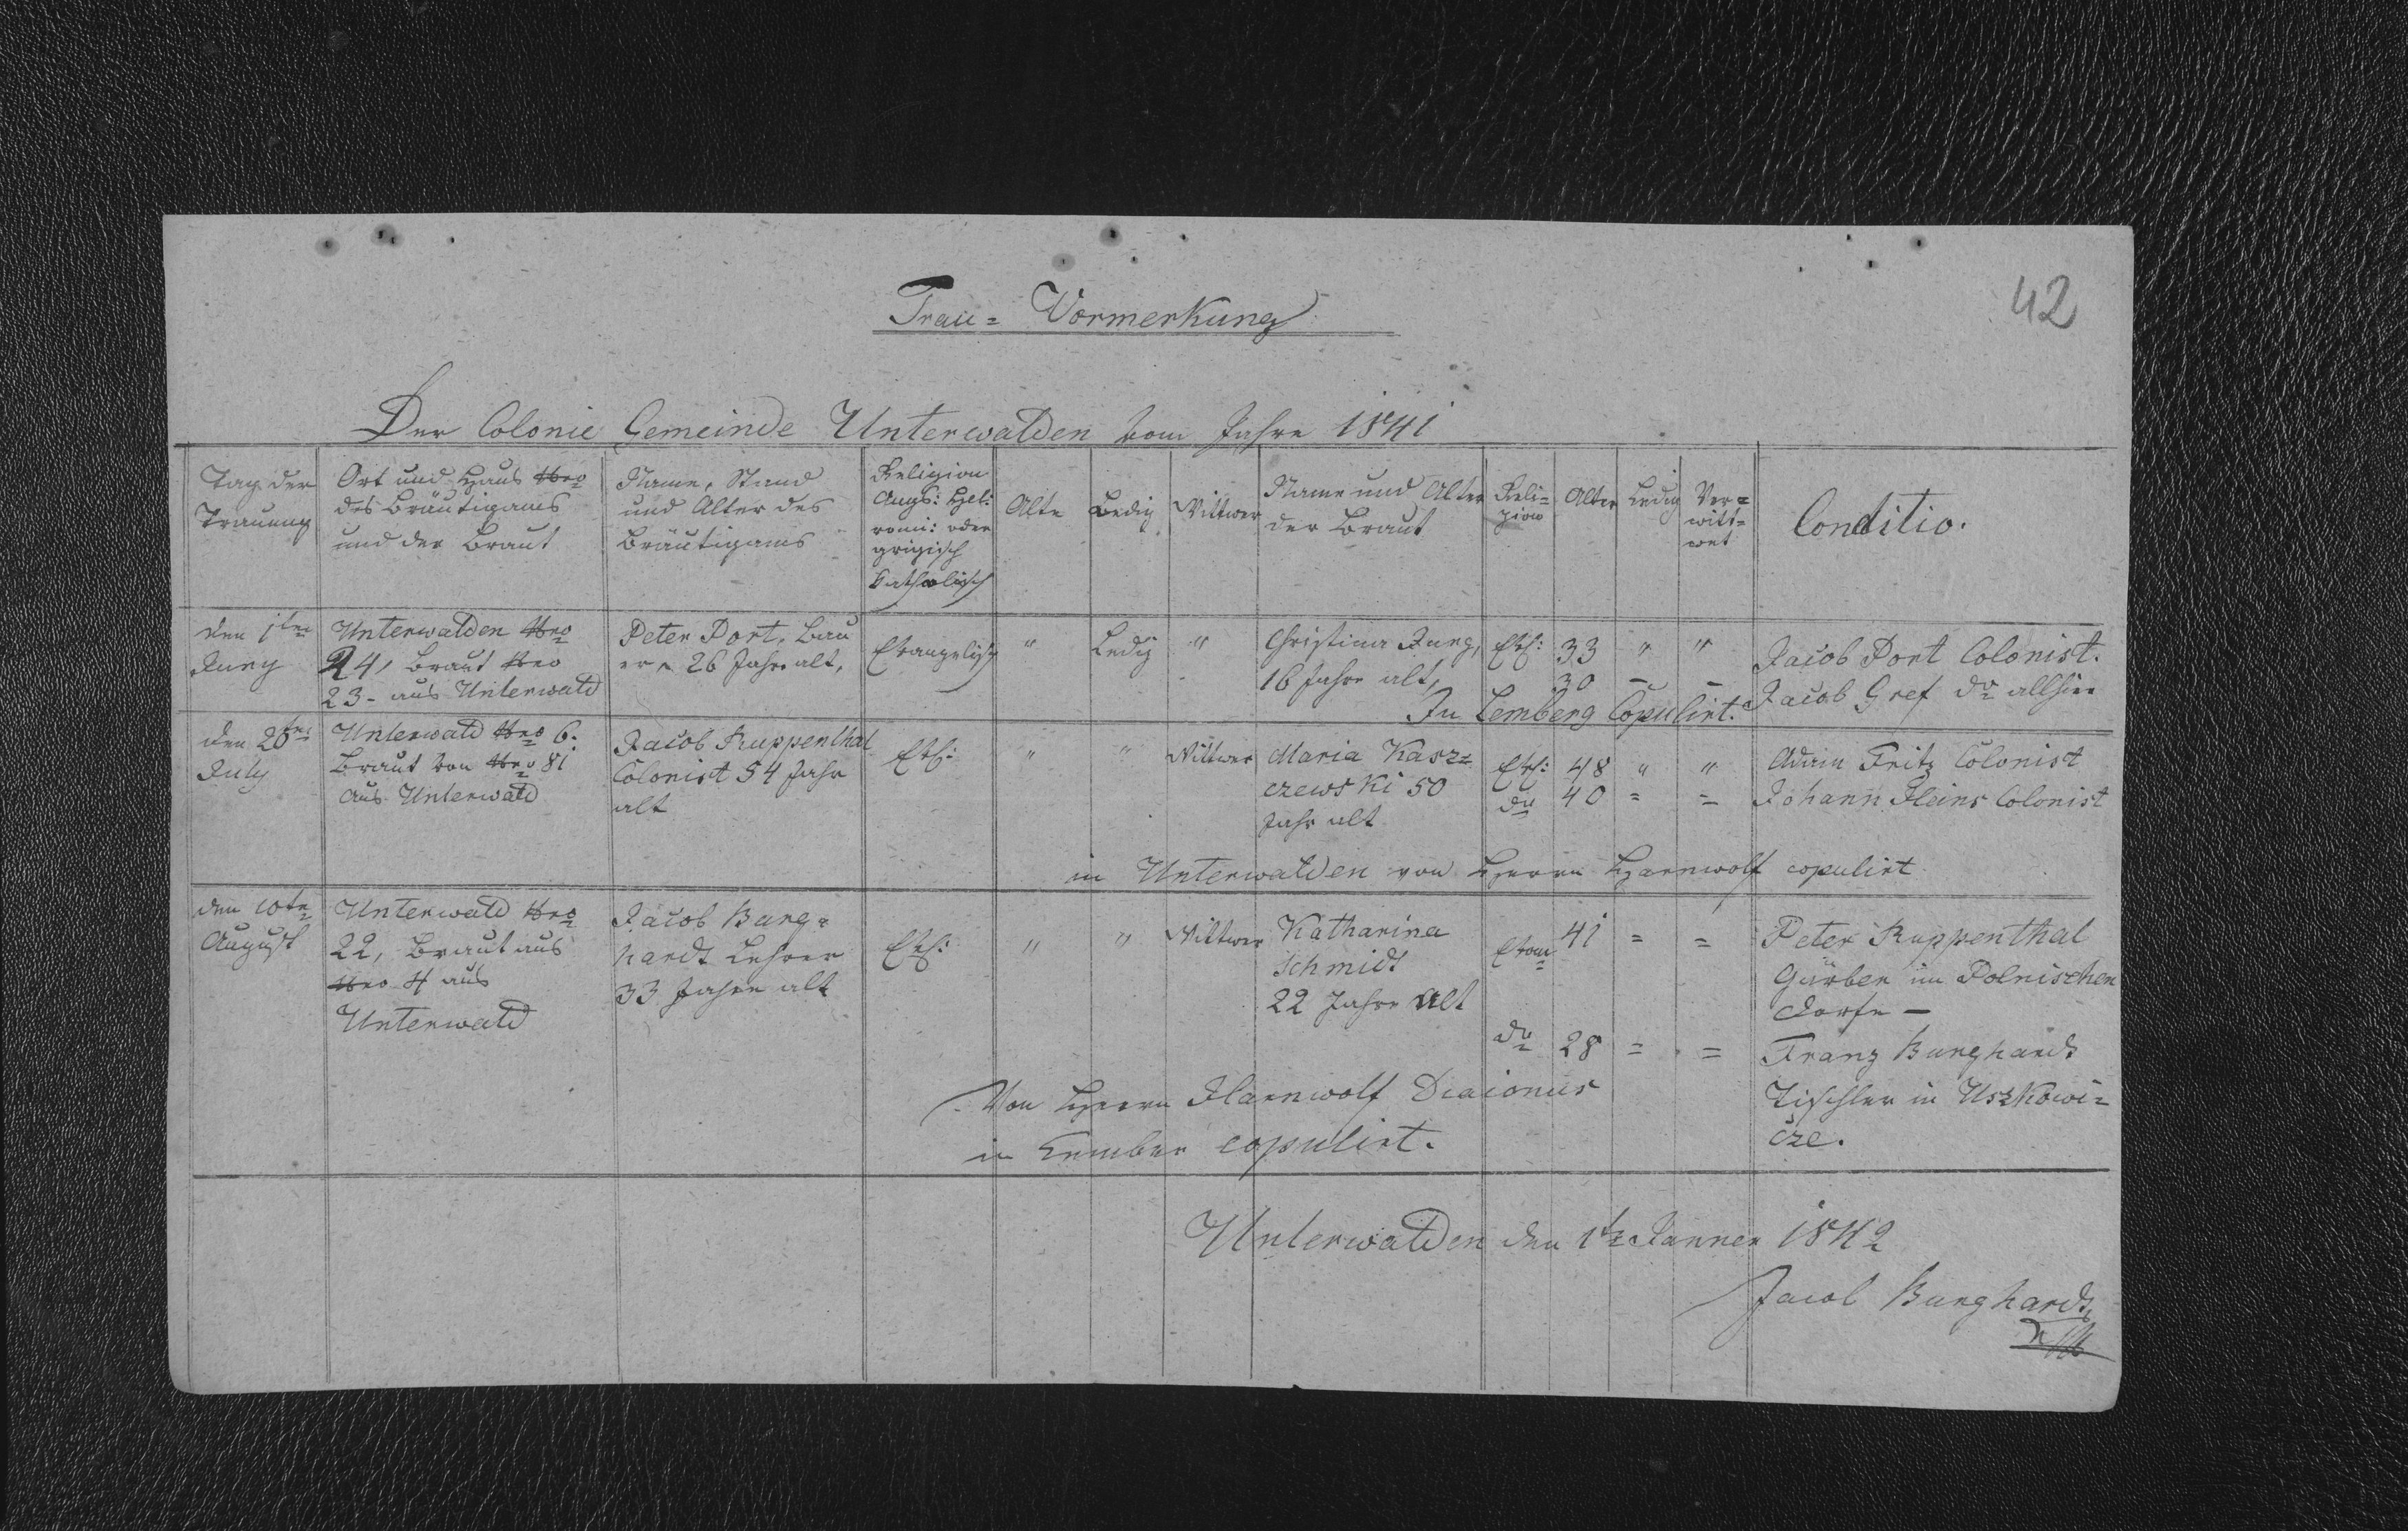 42
Trau= Vormerkung
Der Colonie Gemeinde Unterwalden vom Jahre 1841
Tag der
Trauung
Ort und Haus Nro
des Bräutigams
und der Braut
Name, Stand
und Alter des
Bräutigams
Religion
Augs: Hel:
romi: oder
grigisch
Katholisch
Alte
Ledig
Wittwer
Name und Alter
der Braut
Reli=
gion
Alter
Ledig
Ver=
witt=
wet
Conditio.
den 1ten
Juny
Unterwalden Nro
24, Braut Nro
23 - aus Unterwald
Peter Port, Bau
er, 26 Jahre alt,
Evangelisch
"
Ledig
"
Christina Jung,
16 Jahre alt,
Ev: 33 " "
30 - -
Jacob Port Colonist.
Jacob Gref do allhier
In Lemberg Copulirt.
den 20ten
July
Unterwald Nro 6.
Braut von Nro 81
aus Unterwald
Jacob Ruppenthal
Colonist 54 Jahr
alt
Ev:
"
"
Wittwer
Maria Kasz=
czewski 50
Jahr alt
Ev: 48 " "
do 40 = =
Adam Fritz Colonist
Johann Heins Colonist
in Unterwalden von Herrn Harnwolf copulirt
den 10te
August
Unterwald Nro
22, Braut aus
Nro 4 aus
Unterwald
Jacob Burg=
hardt Lehrer
33 Jahre alt
Ev:
"
"
Wittwer
Katharina
Schmidt
22 Jahre Alt
Evan 41 = =
do 28 = =
Peter Ruppenthal
Gärber im Polnischen
Dorfe -
Franz Burghardt
Tischler in Uszkowi=
cze.
Von Herrn Harnwolf Diaionus
in copulirt.
Unterwalden den 1te Janner 1842
Jacob Burghardt